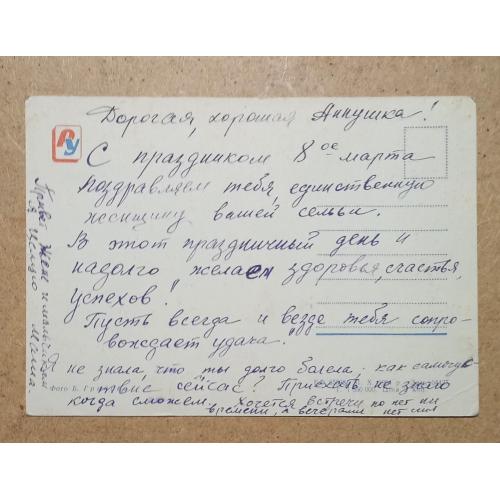 Дорогая, хорошая Аннушка!
РУ
С праздником 8ое марта
поздравляем тебя, единственную
женщину вашей семьи.
В этот праздничный день и
надолго желаем здоровья, счастья,
успехов!
Пусть всегда и везде тебя сопро-
вождает удача.
не знала, что ты долго болела, как самочув-
ствие сейчас? Приехать не знаю
когда сможем. Хочется встречи но нет ни
времени, а вечерами нет сил
Привет Жене и мальчикам
Фото Б.